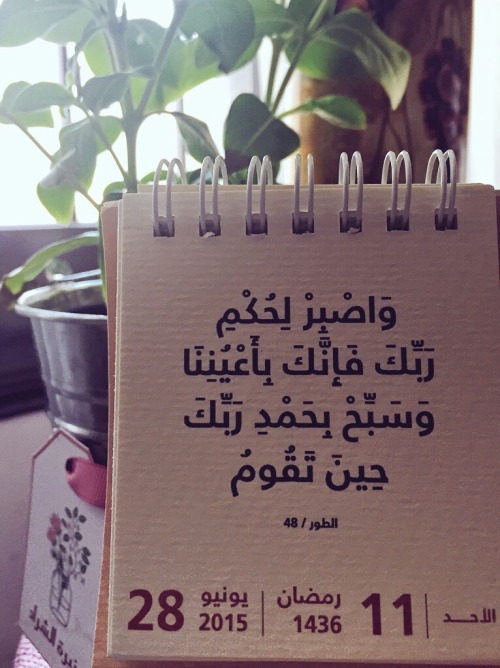 وَاصْبِرْ لِحُكْمِ
رَبِّكَ فَإِنَّكَ بِأَعْيُنِنَا
وَسَبِّحْ بِحَمْدِ رَبِّكَ
حِينَ تَقُومُ
الطور / 48
الأحـد | 11 رمضان 1436 | يونيو 2015 28